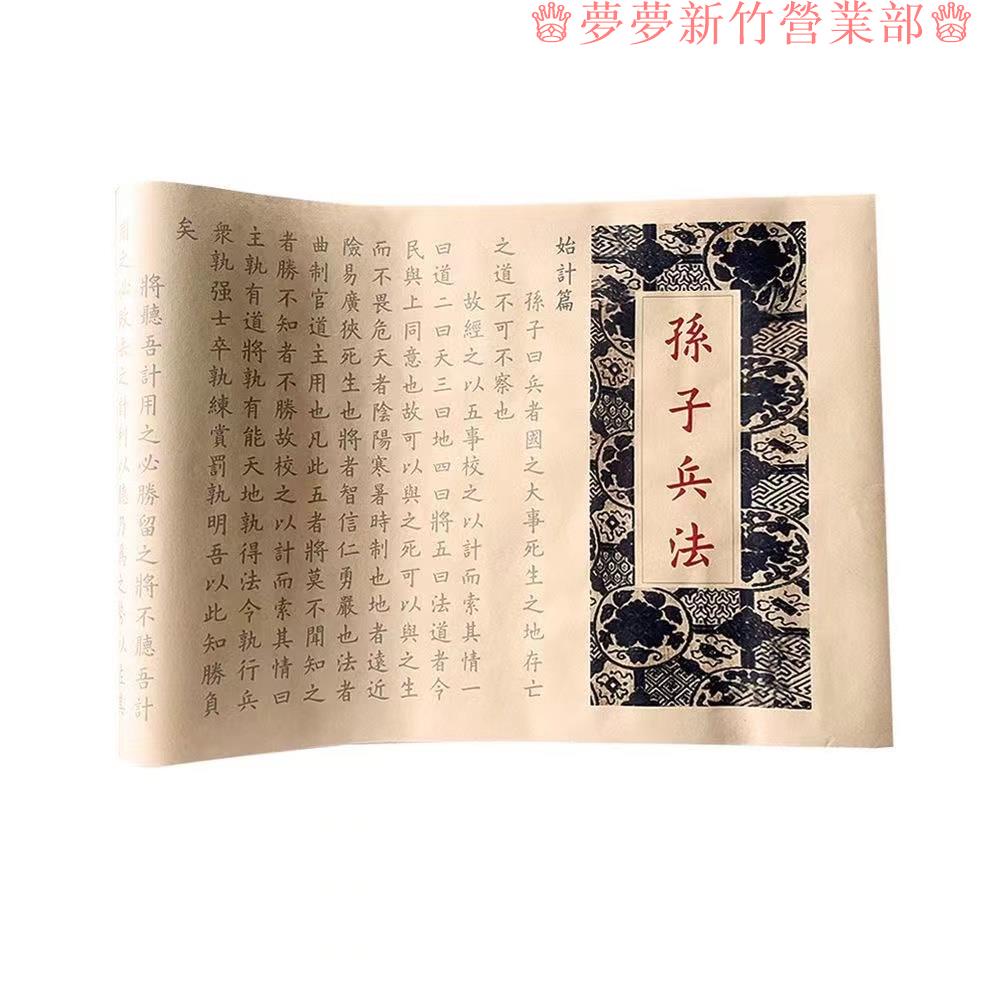 夢夢新竹營業部
孫子兵法
始計篇
孫子曰兵者國之大事死生之地存亡
之道不可不察也
故經之以五事校之以計而索其情一
曰道二曰天三曰地四曰將五曰法道者令
民與上同意也故可以與之死可以與之生
而不畏危天者陰陽寒暑時制也地者遠近
險易廣狹死生也將者智信仁勇嚴也法者
曲制官道主用也凡此五者將莫不聞知之
者勝不知者不勝故校之以計而索其情曰
主孰有道將孰有能天地孰得法令孰行兵
衆孰强士卒孰練賞罰孰明吾以此知勝負
矣
將聽吾計用之必勝留之將不聽吾計